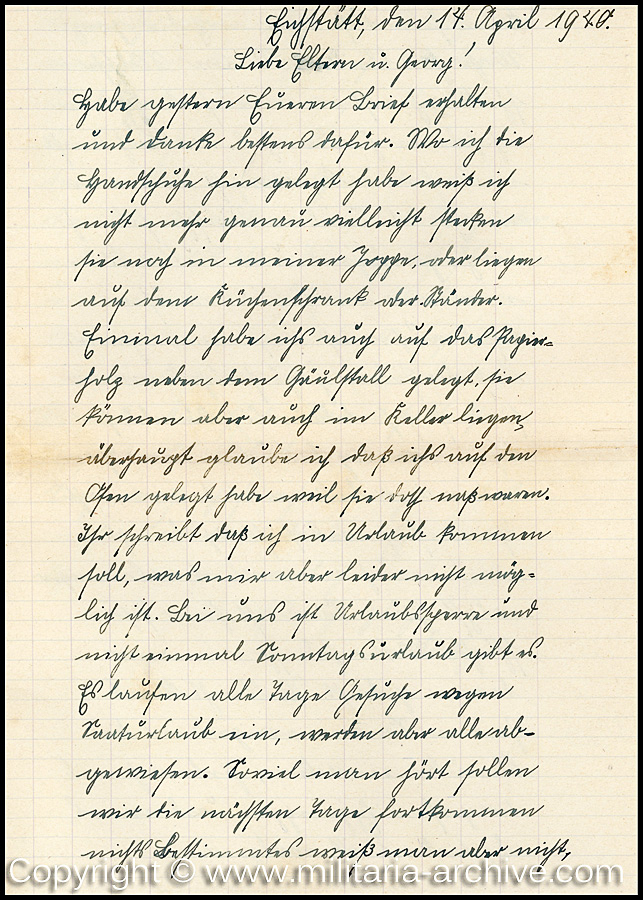 Eichstätt, den 14. April 1940.
Liebe Eltern u. Georg!
Habe gestern Eueren Brief erhalten
und danke bestens dafür. Wo ich die
Handschuhe hin gelegt habe weiß ich
nicht mehr genau vielleicht stecken
sie noch in meiner Joppe, oder liegen
auf dem Küchenschrank oder Ständer.
Einmal habe ichs auch auf das Papier-
holz neben dem Gäulstall gelegt, sie
können aber auch im Keller liegen,
überhaupt glaube ich daß ichs auf den
Ofen gelegt habe weil sie doch naß waren.
Ihr schreibt daß ich in Urlaub kommen
soll, was mir aber leider nicht mög-
lich ist. Bei uns ist Urlaubssperre und
nicht einmal Sonntagsurlaub gibt es.
Es laufen alle Tage Gesuche wegen
Saaturlaub ein, werden aber alle ab-
gewiesen. Soviel man hört sollen
wir die nächsten Tage fortkommen
nichts Bestimmtes weiß man aber nicht,
Copyright © www.militaria-archive.com